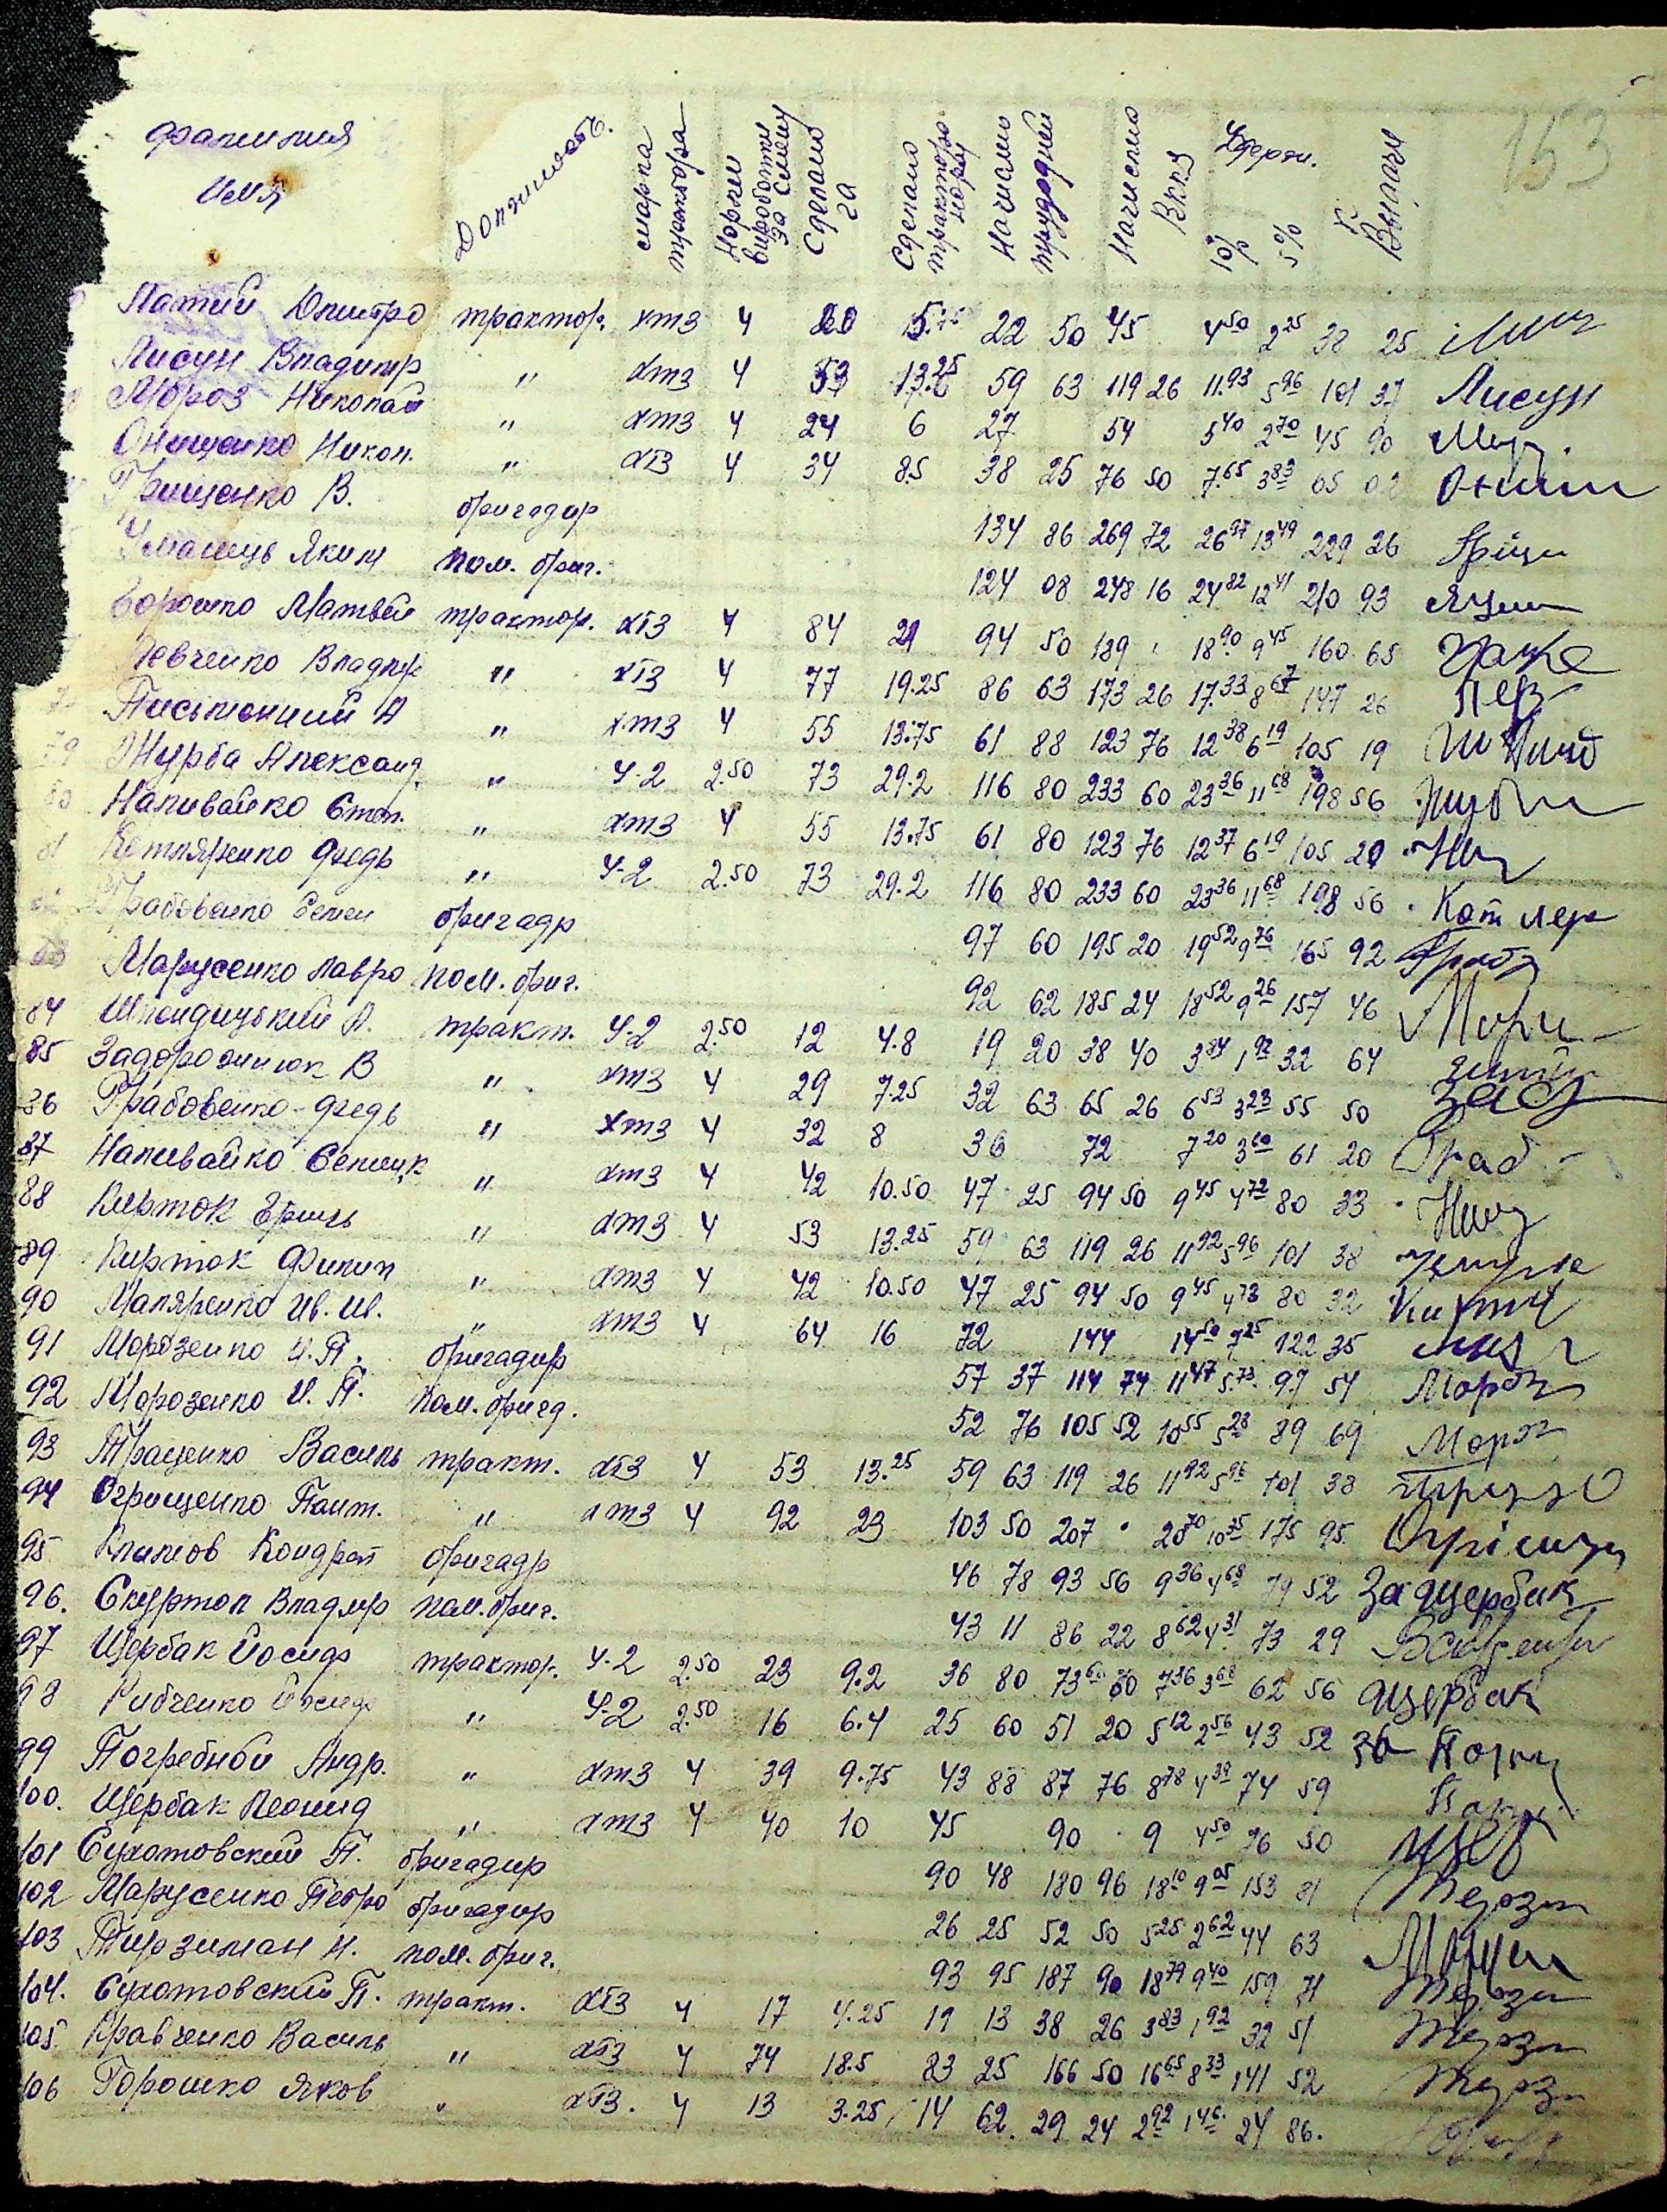 153
фамилия Имя Должность. марка трактора Нормы выработки за смену Сделано га Сделано тракторо норм Начислено трудодней Начислено Вкпд Удерж. 10% 5% К Выдаче
Патий Дмитро трактор. хтз 4 20 22 50 45 4 50 2 25 38 25
Лисун Владимир " хтз 4 53 13.25 59 63 119 26 11.93 5 96 101 37 Лисун
Мороз Николай " хтз 4 24 6 27 54 5 40 2 70 45 90
Онищенко Никол. " хтз 4 34 8.5 38 25 76 50 7.65 3 83 65 02 Онищ
Грищенко В. бригадир 134 86 269 72 26 97 13 49 229 26
Уманець Яким пом. бриг. 124 08 248 16 24 82 12 41 210 93
Горошко Матвей трактор. хтз 4 84 21 94 50 189 18 90 9 45 160 65
Левченко Владир " хтз 4 77 19.25 86 63 173 26 17.33 8 67 147 26 Лев
Письменний А " хтз 4 55 13.75 61 88 123 76 12 38 6 19 105 19
79 Журба Александ. " Ч-2 2.50 73 29.2 116 80 233 60 23 36 11 68 198 56
80 Наливайко Степ. " хтз 4 55 13.75 61 80 123 76 12 37 6 19 105 20
81 Котляренко Федь " Ч-2 2.50 73 29.2 116 80 233 60 23 36 11 68 198 56 Котляр
82 Грабовенко Семен бригадр 97 60 195 20 19 52 9 76 165 92 Грабо
83 Марусенко Лавро пом. бриг. 92 62 185 24 18 52 9 26 157 46
84 Шпендицький А. тракт. Ч-2 2.50 12 4.8 19 20 38 40 3 84 1 92 32 64
85 Задорожнюк В " хтз 4 29 7.25 32 63 65 26 6 53 3 23 55 50 Зад
86 Грабовенко Федь " хтз 4 32 8 36 72 7 20 3 60 61 20 Граб
87 Наливайко " хтз 4 42 10.50 47 25 94 50 9 45 4 72 80 33
88 Кирток " хтз 4 53 13.25 59 63 119 26 11 92 5 96 101 38
89 Кирток Филип " хтз 4 42 10.50 47 25 94 50 9 45 4 73 80 32
90 Маляренко Ив. Ив. " хтз 4 64 16 72 144 14 50 7 25 122 35
91 Морозенко И. П. бригадир 57 37 114 74 11 47 5.73 97 54 Мороз
92 Морозенко И. П. пом. бригд. 52 76 105 52 10 55 5 28 89 69 Мороз
93 Траценко Василь тракт. хтз 4 53 13.25 59 63 119 26 11 92 5 96 101 38
94 Огрищенко Пант. " хтз 4 92 23 103 50 207 20 70 10 35 175 95
95 Климов Кондрат бригадр 46 78 93 56 9 36 4 68 79 52 За щербак
96. Скуртол Владмир пом. бриг. 43 11 86 22 8 62 4 31 73 29
97 Щербак Йосиф трактор. Ч-2 2.50 23 9.2 36 80 73 60 7 36 3 68 62 56 щербак
98 Рибченко Йосиф " Ч-2 2.50 16 6.4 25 60 51 20 5 12 2 56 43 52
99 Погребной Андр. " хтз 4 39 9.75 43 88 87 76 8 78 4 39 74 59
100. Щербак Леонид " хтз 4 40 10 45 90 9 4 50 76 50 Щер
101 Сухотовский П. бригадир 90 48 180 96 18 10 9 05 153 81
102 Марусенко Петро бригадир 26 25 52 50 5 25 2 62 44 63
103 Тирзиман Н. пом. бриг. 93 95 187 90 18 79 9 40 159 71
104. Сухотовский П. тракт. хтз 4 17 4.25 19 13 38 26 3 83 1 92 32 51
105 Кравченко Василь " хтз 4 74 18.5 83 25 166 50 16 65 8 33 141 52
106 Горошко Яков " хтз. 4 13 3.25 14 62. 29 24 2 92 1 46. 24 86.